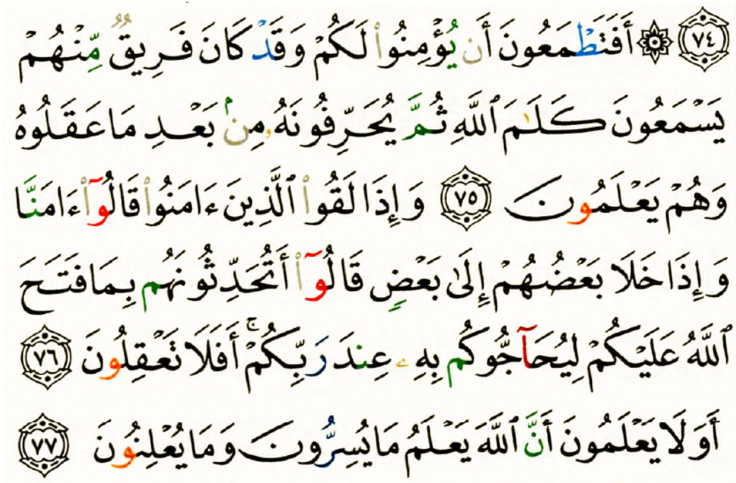 ﴿٧٤﴾ ۞ أَفَتَطْمَعُونَ أَن يُؤْمِنُوا۟ لَكُمْ وَقَدْ كَانَ فَرِيقٌ مِّنْهُمْ
يَسْمَعُونَ كَلَٰمَ ٱللَّهِ ثُمَّ يُحَرِّفُونَهُۥ مِنۢ بَعْدِ مَا عَقَلُوهُ
وَهُمْ يَعْلَمُونَ ﴿٧٥﴾ وَإِذَا لَقُوا۟ ٱلَّذِينَ ءَامَنُوا۟ قَالُوٓا۟ ءَامَنَّا
وَإِذَا خَلَا بَعْضُهُمْ إِلَىٰ بَعْضٍ قَالُوٓا۟ أَتُحَدِّثُونَهُم بِمَا فَتَحَ
ٱللَّهُ عَلَيْكُمْ لِيُحَآجُّوكُم بِهِۦ عِندَ رَبِّكُمْ ۚ أَفَلَا تَعْقِلُونَ ﴿٧٦﴾
أَوَلَا يَعْلَمُونَ أَنَّ ٱللَّهَ يَعْلَمُ مَا يُسِرُّونَ وَمَا يُعْلِنُونَ ﴿٧٧﴾